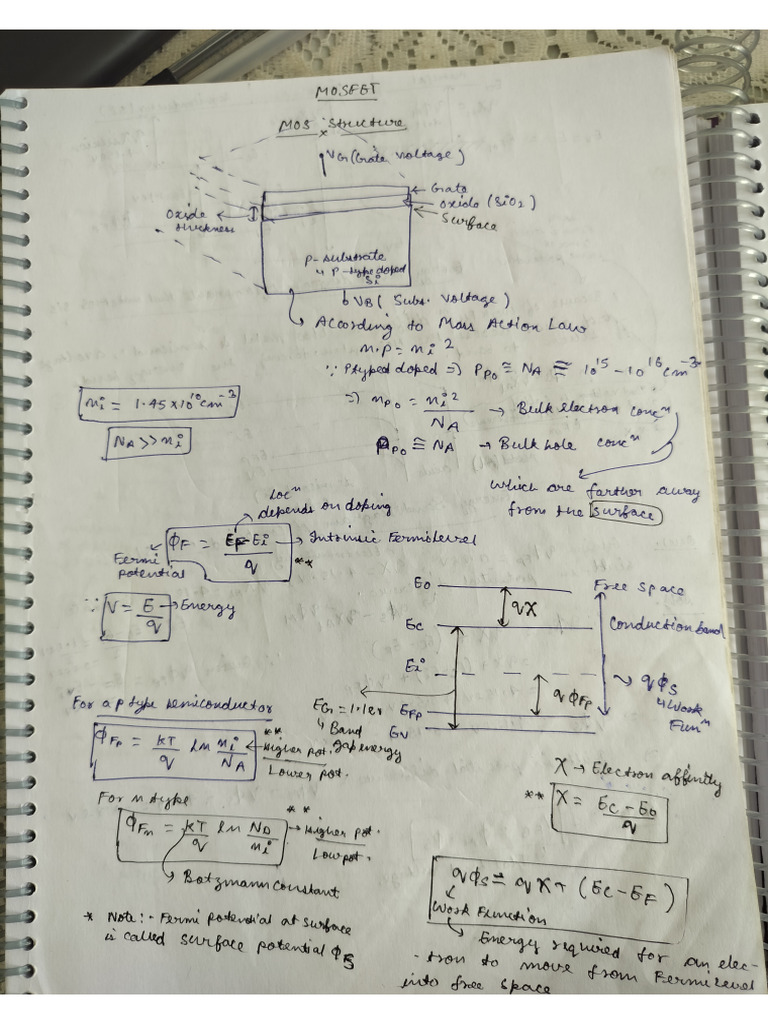 MOSFET
MOS Structure
VG (Gate Voltage)
← Gate
Oxide (SiO2)
Surface
Oxide thickness
P-substrate
↳ P-type doped Si
VB (Subs. Voltage)
↳ According to Mass Action Law
n.p = ni²
∵ Ptyped doped => Ppo ≅ NA ≅ 10^15 - 10^16 cm^-3
ni = 1.45 x 10^10 cm^-3
=> npo = ni²/NA → Bulk electron concⁿ
NA >> ni
Ppo ≅ NA → Bulk hole concⁿ
which are farther away
from the surface
Locⁿ
depends on doping
ϕF = (EF - Ei)/q → Intrinsic Fermi level
**
Fermi potential
∵ V = E/q → Energy
E0 Free Space
qX
Ec Conduction band
Ei
qϕFp
qϕs
↳ Work Funⁿ
EG = 1.1eV
↳ Band gap energy
EFp
Ev
For a p type semiconductor
ϕFp = kT/q ln ni/NA ← Higher pot. / Lower pot.
**
X → Electron affinity
** X = (Ec - E0)/q
For n type
ϕFn = kT/q ln ND/ni → Higher pot. / Low pot.
**
↳ Botzmann constant
qϕs = qX + (Ec - EF)
Work Function
↳ Energy required for an elec-
-tron to move from Fermi level
into free space
* Note:- Fermi potential at surface
is called surface potential ϕs